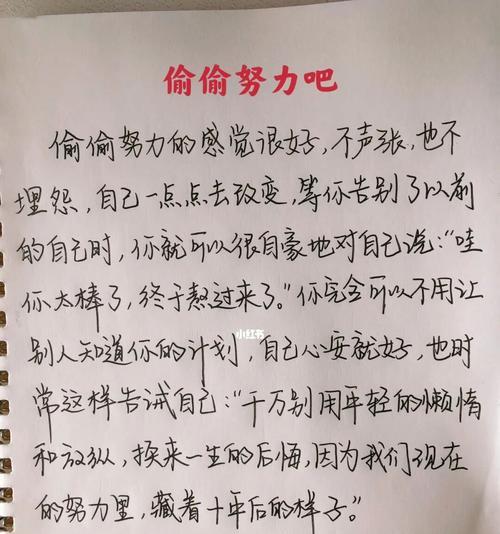 偷偷努力吧
偷偷努力的感觉很好，不声张，也不
埋怨，自己一点点去改变，等你告别了以前
的自己时，你就可以很自豪地对自己说：“哇
你太棒了，终于熬过来了。”你完全可以不用让
小红书
别人知道你的计划，自己心安就好，也时
常这样告诫自己：“千万别用年轻的懒惰
和放纵，换来一生的后悔，因为我们现在
的努力里，藏着十年后的样子。”